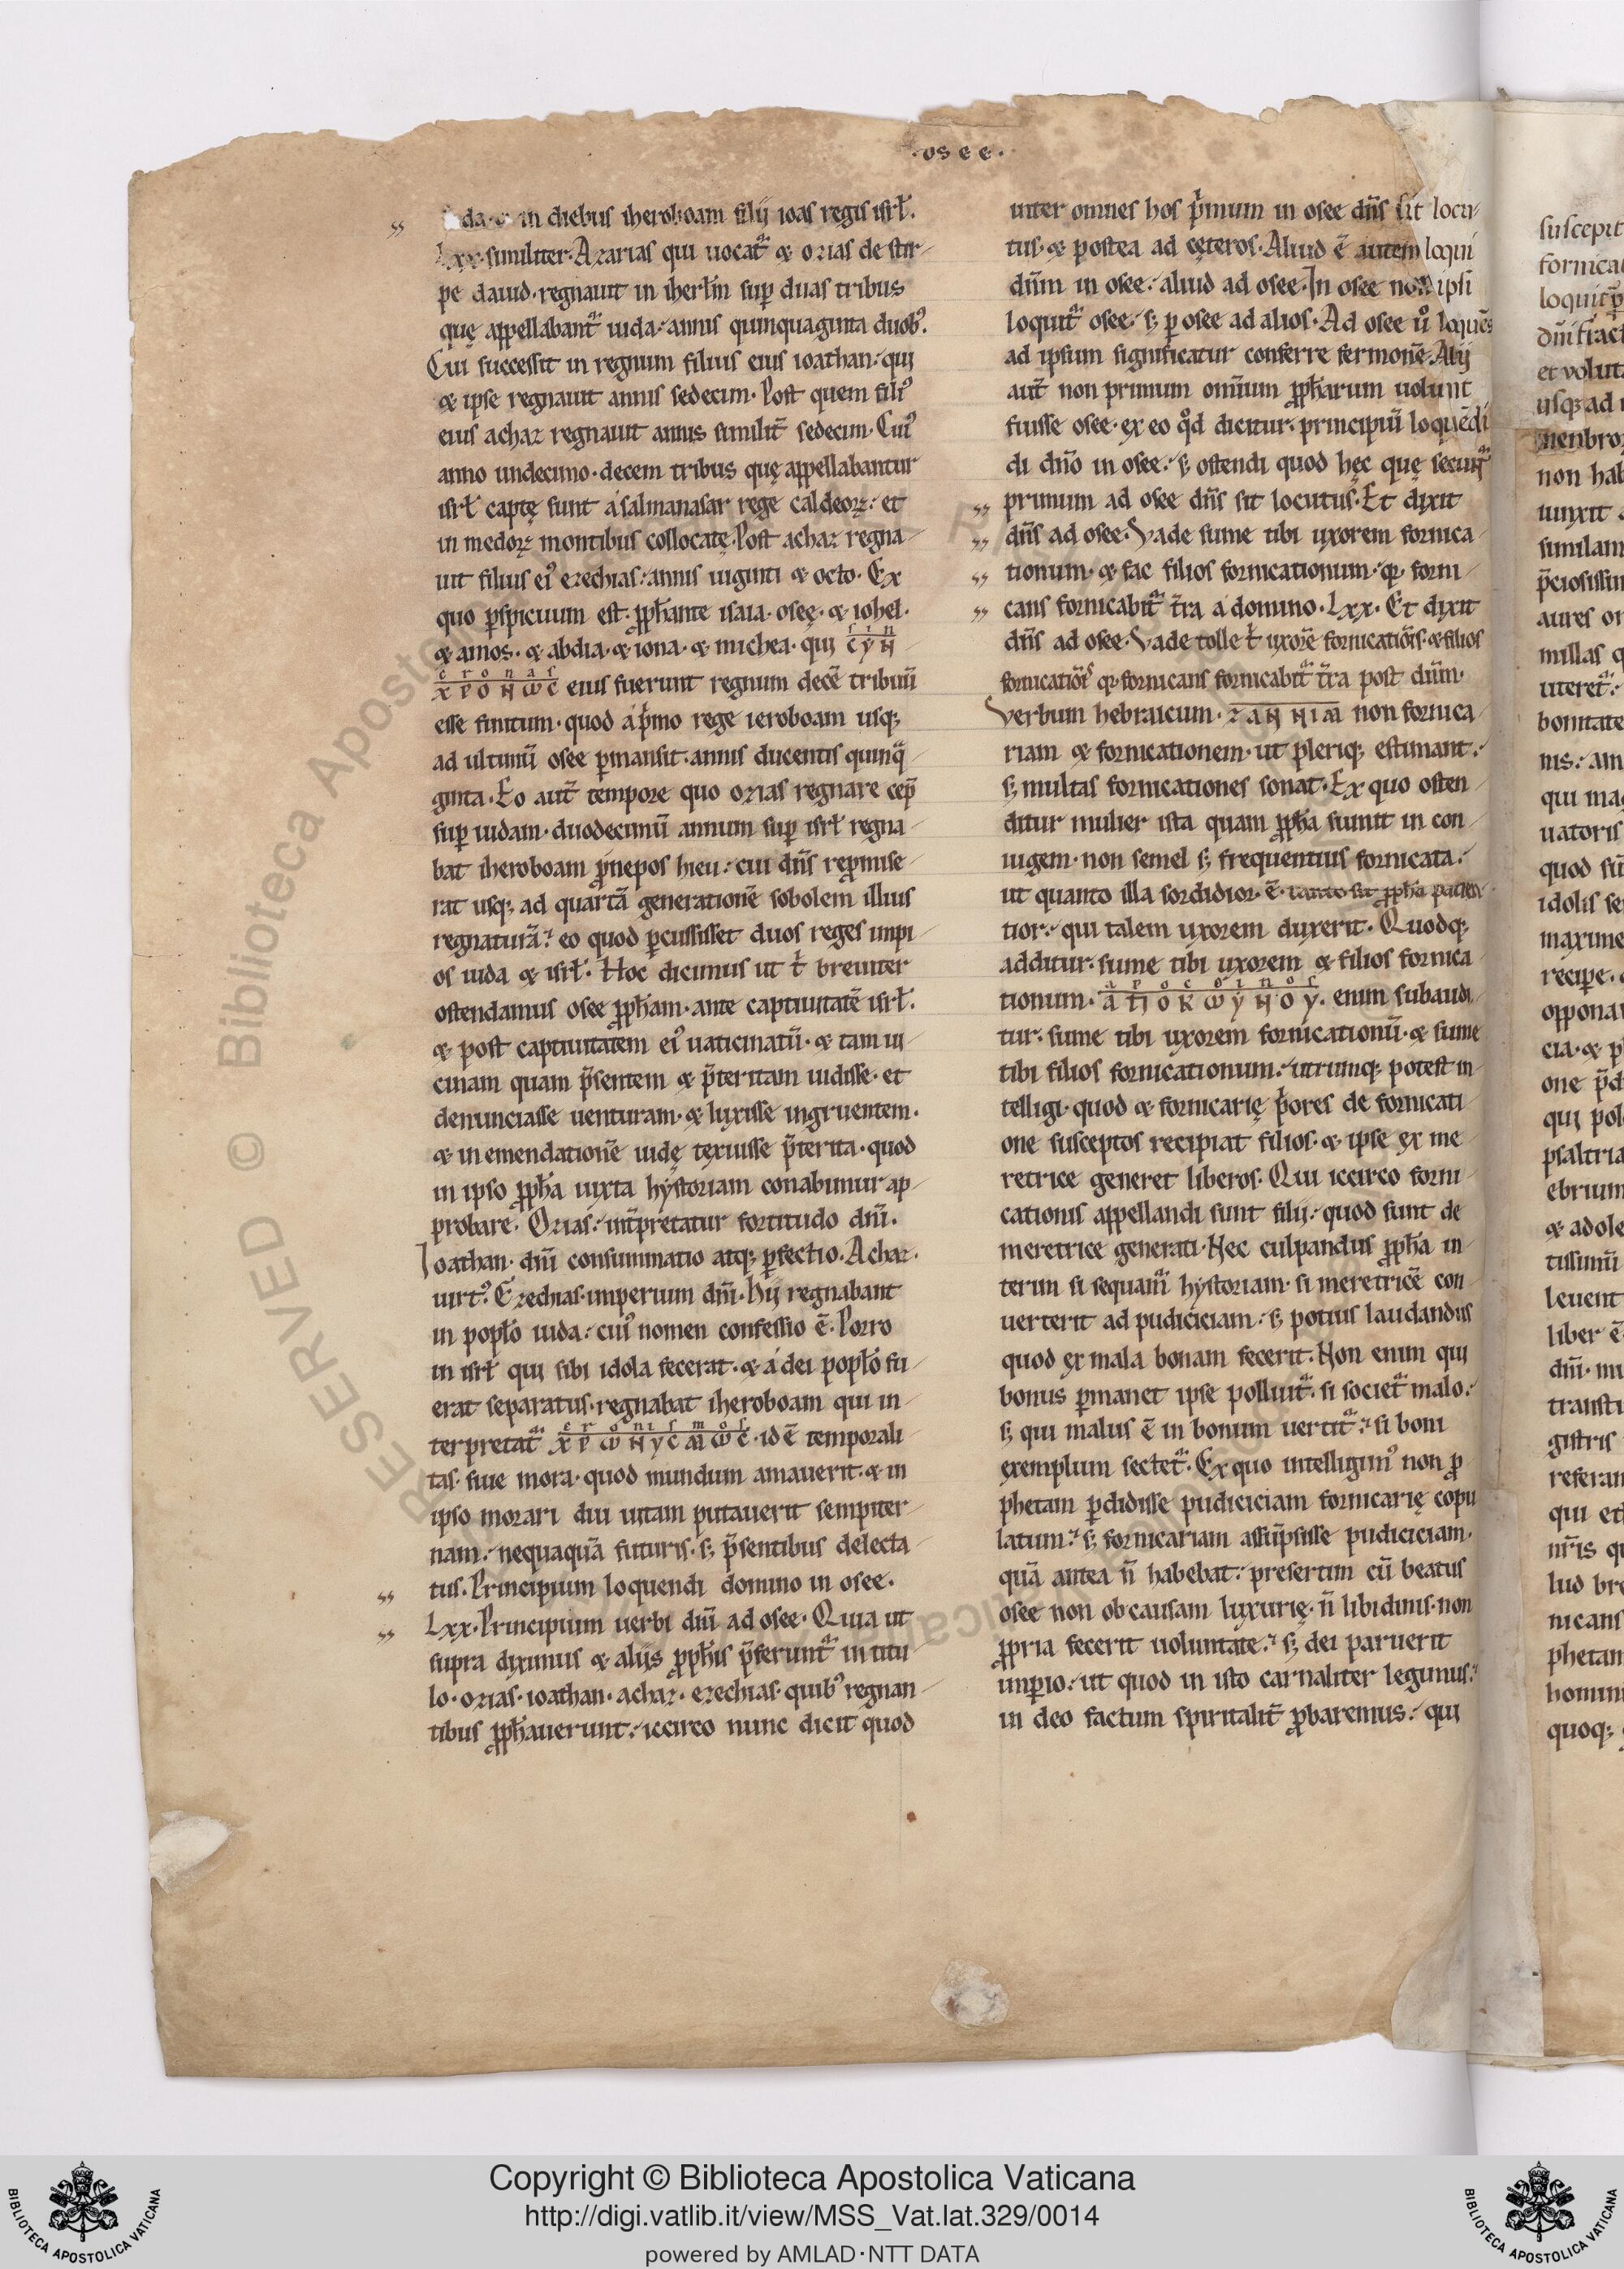 ·osee·
da· & in diebus iheroboam filij ioas regis isrł.
Lxx· similiter· Azarias qui uocat᷑ & ozias de stir-
pe dauid· regnauit in iherłm sup duas tribus
quę appellabant᷑ iuda· annis quinquaginta duobꝰ.
Cui successit in regnum filius eius ioathan· qui
& ipse regnauit annis sedecim· Post quem filiꝰ
eius achaz regnauit annis similit̃ sedecim· Cuiꝰ
anno undecimo· decem tribus quę appellabantur
isrł captę sunt a salmanasar rege caldeoꝝ· et
in medoꝝ montibus collocatę. Post achaz regna-
uit filius eiꝰ ezechias· annis uiginti & octo· Ex
quo ꝑspicuum est· ꝓph̃ante isaia· oseę· & iohel·
& amos· & abdia· & iona· & michea· qui CYN
XPONωC eius fuerunt regnum decē tribuū
esse finitum· quod a pͥmo rege ieroboam usqꝫ
ad ultimū osee ꝑmansit· annis ducentis quinq̃-
ginta· Eo aut̃ tempore quo ozias regnare cep̃
sup iudam· duodecimū annum sup isrł regna-
bat iheroboam ꝓnepos hieu· cui dñs repͦmise-
rat usqꝫ ad quartā generationē sobolem illius
regnaturā· eo quod ꝑcussisset duos reges impi-
os iuda & isrł· Hoc dicimus ut ł breuiter
ostendamus osee ꝓph̃am· ante captiuitatē isrł·
& post captiuitatem eiꝰ uaticinatū· & tam ui-
cinam quam p̃sentem & p̃teritam uidisse· et
denunciasse uenturam· & luxisse ingruentem·
& in emendationē iudę texuisse p̃terita· quod
in ipso ꝓph̃a iuxta hystoriam conabimur ap-
probare· Ozias· int̃pretatur fortitudo dñi·
Ioathan· dñi consummatio atqꝫ ꝑfectio· Achaz·
uirtꝰ· Ezechias· imperium dñi· Hij regnabant
in popło iuda· cuiꝰ nomen confessio ē· Porro
in isrł qui sibi idola fecerat· & a dei popło fu-
erat separatus· regnabat iheroboam qui in-
terpretat᷑ XPωNYCMωC· id ē temporali-
tas· siue mora· quod mundum amauerit· & in
ipso morari diu uitam putauerit sempiter-
nam· nequaquā futuris· sꝫ p̃sentibus delecta-
tus· Principium loquendi domino in osee·
Lxx· Principium uerbi dñi ad osee· Quia ut
supra diximus & alijs ꝓph̃is p̃ferunt᷑ in titu-
lo· ozias· ioathan· achaz· ezechias· quibꝰ regnan-
tibus ꝓph̃auerunt· iccirco nunc dicit quod
inter omnes hos pͥmum in osee dñs sit locu-
tus· & postea ad cęteros· Aliud ē autem loqui
dñm in osee· aliud ad osee· In osee non ipsi
loquit᷑ osee· sꝫ ꝑ osee ad alios· Ad osee uͦ loquēs
ad ipsum significatur conferre sermonē· Alij
aut̃ non primum omīum ꝓph̃arum uolunt
fuisse osee· ex eo qͦd dicitur· principiū loquēdi
di dño in osee· sꝫ ostendi quod hęc quę secunt᷑
primum ad osee dñs sit locutus· Et dixit
dñs ad osee· Vade sume tibi uxorem fornica-
tionum· & fac filios fornicationum· qꝛ forni-
cans fornicabit᷑ t̃ra a domino· Lxx· Et dixit
dñs ad osee· Vade tolle ł uxorē fornicatiōis· & filios
fornicatiōis qꝛ fornicans fornicabit᷑ t̃ra post dñm·
Verbum hebraicum· ZANNIM non fornica-
riam & fornicationem· ut pleriqꝫ estimant·
sꝫ multas fornicationes sonat· Ex quo osten-
ditur mulier ista quam ꝓph̃a sumit in con-
iugem· non semel sꝫ frequentius fornicata·
ut quanto illa sordidior ē· tanto sit ꝓph̃a patien-
tior· qui talem uxorem duxerit· Quodqꝫ
additur· sume tibi uxorem & filios fornica-
tionum· AΠOKωYNOY· enim subaudi-
tur· sume tibi uxorem fornicationū· & sume
tibi filios fornicationum· utrumqꝫ potest in-
telligi· quod & fornicarię pͥores de fornicati-
one susceptos recipiat filios· & ipse ex me-
retrice generet liberos· Qui iccirco forni-
cationis appellandi sunt filij· quod sunt de
meretrice generati· Nec culpandus ꝓph̃a in-
terim si sequam᷑ hystoriam· si meretricē con-
uerterit ad pudiciciam· sꝫ potius laudandus
quod ex mala bonam fecerit· Non enim qui
bonus ꝑmanet ipse polluit᷑· si societ᷑ malo·
sꝫ qui malus ē in bonum uertit᷑· si boni
exemplum sectet᷑· Ex quo intelligimꝰ non ꝓ-
phetam ꝑdidisse pudiciciam fornicarię copu-
latum· sꝫ fornicariam assūpsisse pudiciciam·
quā antea ñ habebat· presertim cū beatus
osee non ob causam luxurię· ñ libidinis· non
ꝓpria fecerit uoluntate· sꝫ dei paruerit
imꝑio· ut quod in isto carnaliter legimus·
in deo factum spiritalit̃ ꝓbaremus· qui
suscepit
loquit᷑
et volut
usqꝫ ad
non hab
iunxit
aures
millas
bonitate
qui
uatoris
quod
maxime
recipe·
psaltria
ebrium
leuent
liber ē
referan
phetam
quoqꝫ
Copyright © Biblioteca Apostolica Vaticana
http://digi.vatlib.it/view/MSS_Vat.lat.329/0014
powered by AMLAD·NTT DATA
BIBLIOTECA APOSTOLICA VATICANA
BIBLIOTECA APOSTOLICA VATICANA